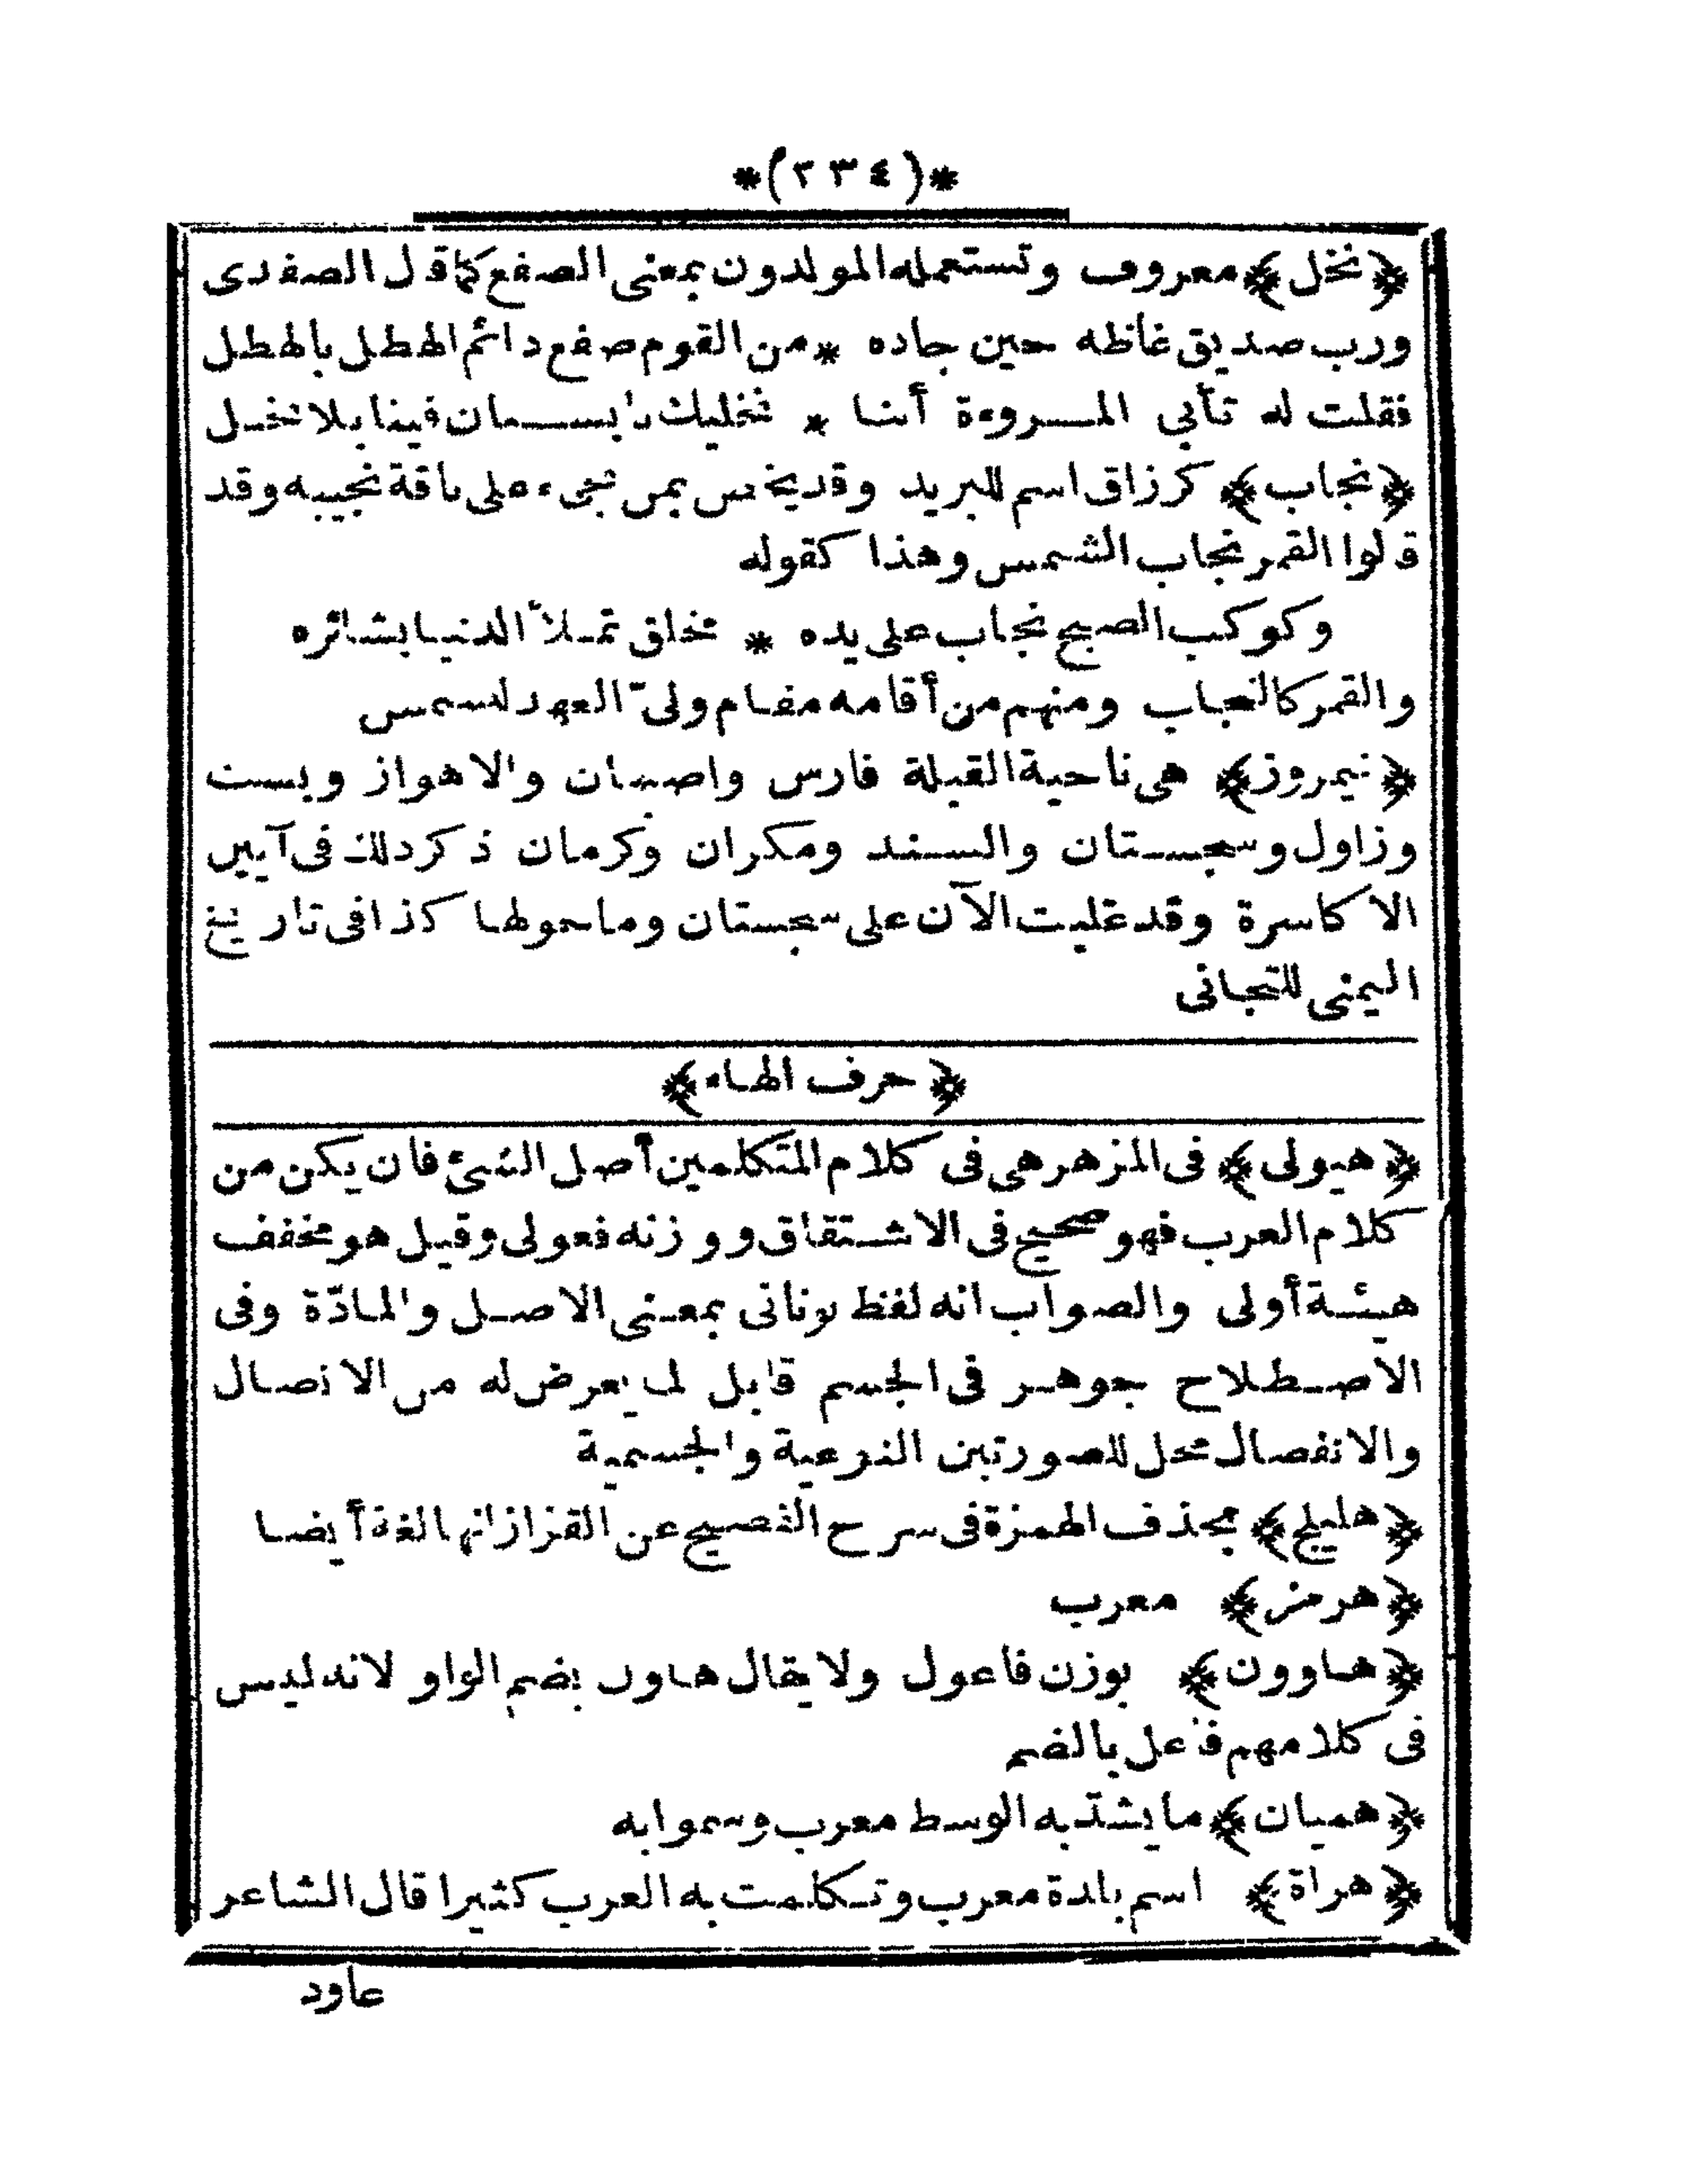 *(٢٣٤)*
﴿نخل﴾ معروف وتستعمله المولدون بمعنى الصفع كما قال الصفدى
ورب صديق غاظه حين جاده * من القوم صفع دائم الهطل بالهطل
فقلت له تأبى المروءة أننا * نخليك يابستان فينا بلا نخل
﴿نجاب﴾ كرزاق اسم للبريد وقد يخص بمن يجىء على ناقة نجيبه وقد
قالوا القمر نجاب الشمس وهذا كقوله
وكوكب الصبح نجاب على يده * مخلق تملأ الدنيا بشائره
والقمر كالنجاب ومنهم من أقامه مقام ولىّ العهد للشمس
﴿نيمروز﴾ هى ناحية القبلة فارس واصبهان والاهواز وبست
وزاول وسجستان والسند ومكران وكرمان ذكر ذلك فى آيين
الاكاسرة وقد غلبت الآن على سجستان وما حولها كذا فى تاريخ
اليمنى للنجاتى
﴿حرف الهاء﴾
﴿هيولى﴾ فى المزهر هى فى كلام المتكلمين أصل الشئ فان يكن من
كلام العرب فهو صحيح فى الاشتقاق ووزنه فعولى وقيل هو مخفف
هيئة أولى والصواب انه لفظ يونانى بمعنى الاصل والمادّة وفى
الاصطلاح جوهر فى الجسم قابل لما يعرض له من الاتصال
والانفصال محل للصورتين النوعية والجسمية
﴿هليلج﴾ بحذف الهمزة فى شرح الفصيح عن القزاز انها لغة أيضا
﴿هرمز﴾ معرب
﴿هاوون﴾ بوزن فاعول ولا يقال هاون بضم الواو لانه ليس
فى كلامهم فاعل بالضم
﴿هميان﴾ ما يشدّ به الوسط معرب وسموا به
﴿هراة﴾ اسم بلدة معرب وتكلمت به العرب كثيرا قال الشاعر
عاود